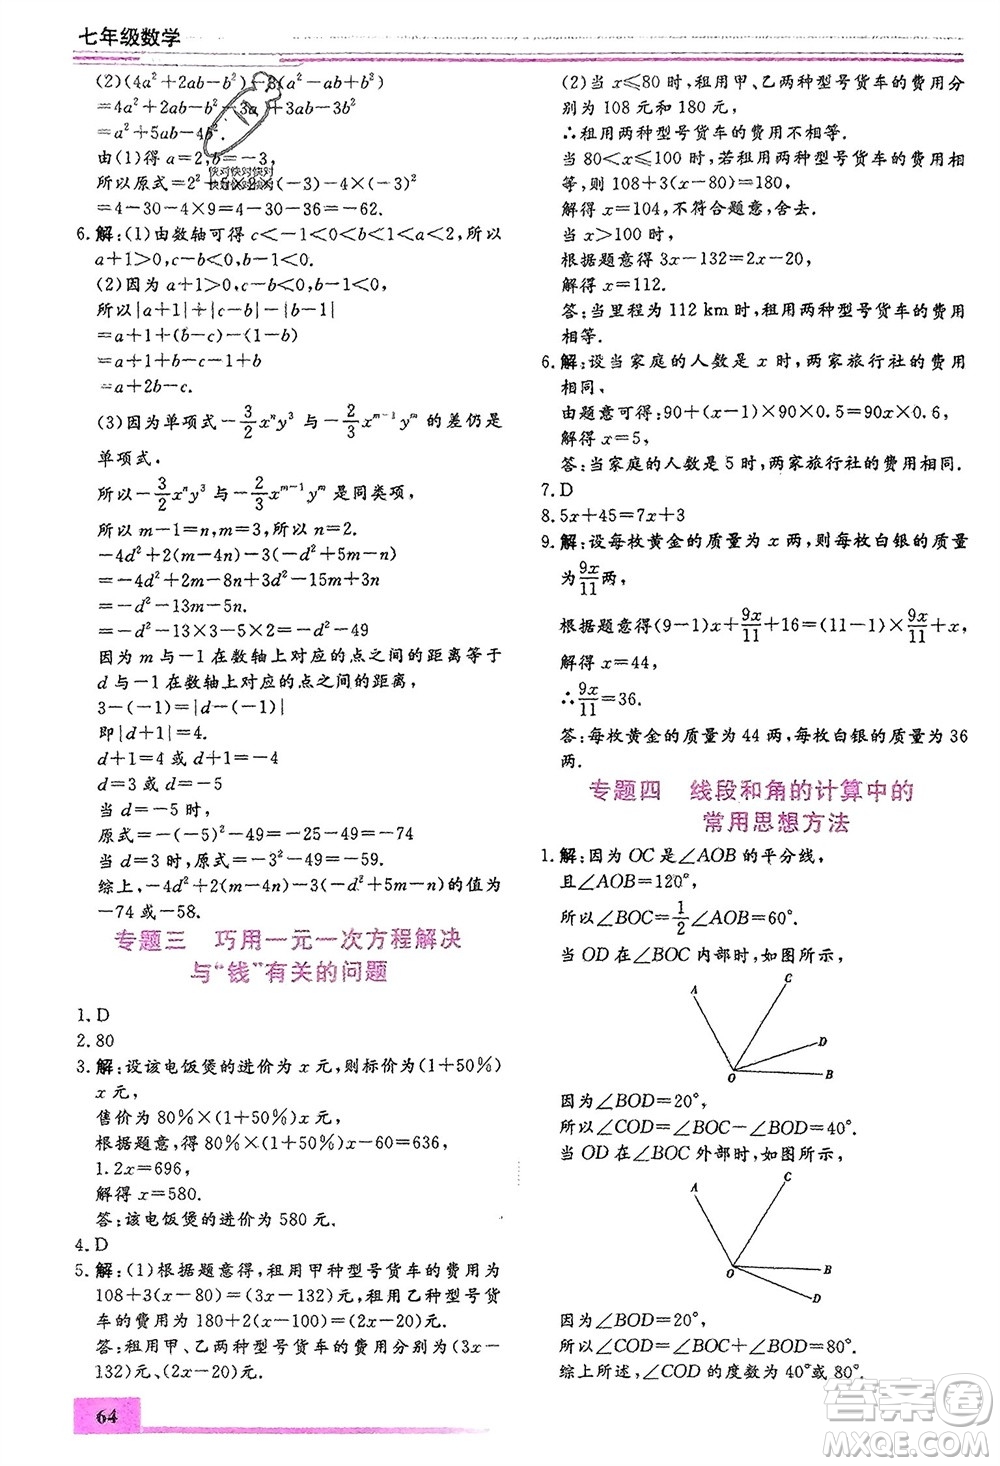 七年级数学
(2)(4a²+2ab-b²)-3(a²-ab+b²)
=4a²+2ab-b²-3a²+3ab-3b²
=a²+5ab-4b².
由(1)得 a=2,b=-3,
所以原式=2²+5×2×(-3)-4×(-3)²
=4-30-4×9=4-30-36=-62.
6.解:(1)由数轴可得 c<-1<0<b<1<a<2,所以
a+1>0,c-b<0,b-1<0.
(2)因为 a+1>0,c-b<0,b-1<0,
所以|a+1|+|c-b|-|b-1|
=a+1+(b-c)-(1-b)
=a+1+b-c-1+b
=a+2b-c.
(3)因为单项式-3/2xⁿy³与-2/3xᵐ⁻¹yᵐ的差仍是
单项式.
所以-3/2xⁿy³与-2/3xᵐ⁻¹yᵐ是同类项,
所以 m-1=n,m=3,所以 n=2.
-4d²+2(m-4n)-3(-d²+5m-n)
=-4d²+2m-8n+3d²-15m+3n
=-d²-13m-5n.
=-d²-13×3-5×2=-d²-49
因为 m 与-1在数轴上对应的点之间的距离等于
d 与-1在数轴上对应的点之间的距离,
3-(-1)=|d-(-1)|
即|d+1|=4.
d+1=4或d+1=-4
d=3或d=-5
当 d=-5时,
原式=-(-5)²-49=-25-49=-74
当 d=3时,原式=-3²-49=-9-49=-58
综上,-4d²+2(m-4n)-3(-d²+5m-n)的值为
-74或-58.
专题三 巧用一元一次方程解决
与“钱”有关的问题
1.D
2.80
3.解:设该电饭煲的进价为 x 元,则标价为(1+50%)
x 元,
售价为 80%×(1+50%)x 元,
根据题意,得 80%×(1+50%)x-60=636,
1.2x=696,
解得 x=580.
答:该电饭煲的进价为 580 元.
4.D
5.解:(1)根据题意得,租用甲种型号货车的费用为
108+3(x-80)=(3x-132)元,租用乙种型号货
车的费用为 180+2(x-100)=(2x-20)元.
答:租用甲、乙两种型号货车的费用分别为(3x-
132)元、(2x-20)元.
64
(2)当 x≤80 时,租用甲、乙两种型号货车的费用分
别为 108 元和 180 元.
∴租用两种型号货车的费用不相等.
当 80<x≤100 时,租用两种型号货车的费用相
等,则 108+3(x-80)=180,
解得 x=104,不符合题意,舍去.
当 x>100 时,
根据题意得 3x-132=2x-20,
解得 x=112.
答:当里程为 112 km 时,租用两种型号货车的费用
相等.
6.解:设当家庭的人数是 x 时,两家旅行社的费用
相同,
由题意可得:90+(x-1)×90×0.5=90x×0.6,
解得 x=5,
答:当家庭的人数是 5 时,两家旅行社的费用相同.
7.D
8.5x+45=7x+3
9.解:设每枚黄金的质量为 x 两,则每枚白银的质量
为9x/11两,
根据题意得(9-1)x+9x/11+16=(11-1)×9x/11+x,
解得 x=44,
∴9x/11=36.
答:每枚黄金的质量为 44 两,每枚白银的质量为 36
两.
专题四 线段和角的计算中的
常用思想方法
1.解:因为 OC 是∠AOB 的平分线,
且∠AOB=120°,
所以∠BOC=1/2∠AOB=60°.
当 OD 在∠BOC 内部时,如图所示,
A
C
D
O
B
因为∠BOD=20°,
所以∠COD=∠BOC-∠BOD=40°.
当 OD 在∠BOC 外部时,如图所示,
A
C
B
O
D
因为∠BOD=20°,
所以∠COD=∠BOC+∠BOD=80°.
综上所述,∠COD 的度数为 40°或 80°.
快对快对快对
答案卷
MXQE.COM